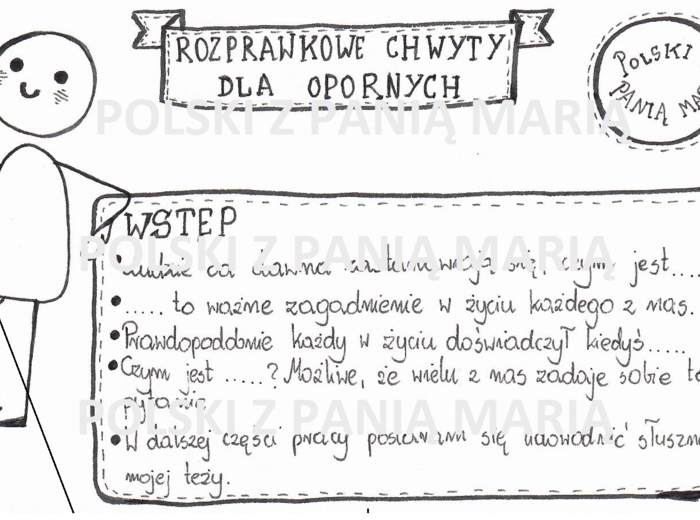 ROZPRAWKOWE CHWYTY
DLA OPORNYCH
POLSKI
PANIĄ MA
POLSKI Z PANIĄ MARIĄ
WSTĘP
POLSKI Z PANIĄ MARIĄ
• od dawna się, czym jest....
• ..... to ważne zagadnienie w życiu każdego z nas.
• Prawdopodobnie każdy w życiu doświadczył kiedyś.....
• Czym jest .....? Możliwe, że wielu z nas zadaje sobie to
pytanie.
POLSKI Z PANIĄ MARIĄ
• W dalszej części pracy postaram się udowodnić słuszn
mojej tezy.